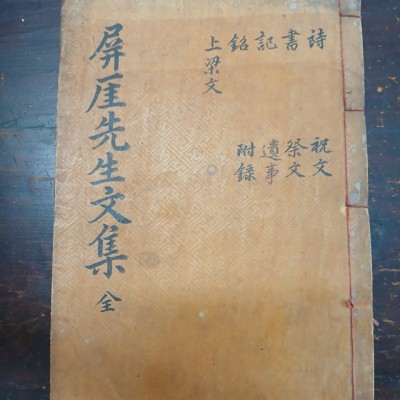 詩 祝文
書 祭文
記 遺事
銘 附錄
上梁文
屛厓先生文集 全